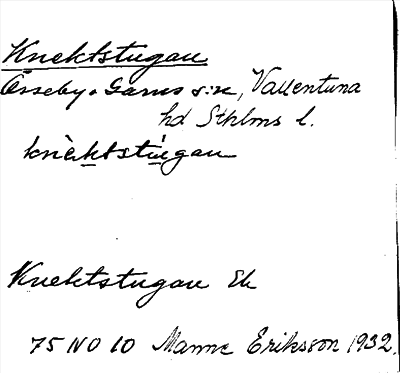 Knektstugan
Össeby-Garns s:n, Vallentuna
hd Sthlms l.
knèktstúgan
Knektstugan Ek
75 NO 10 Manne Eriksson 1932.